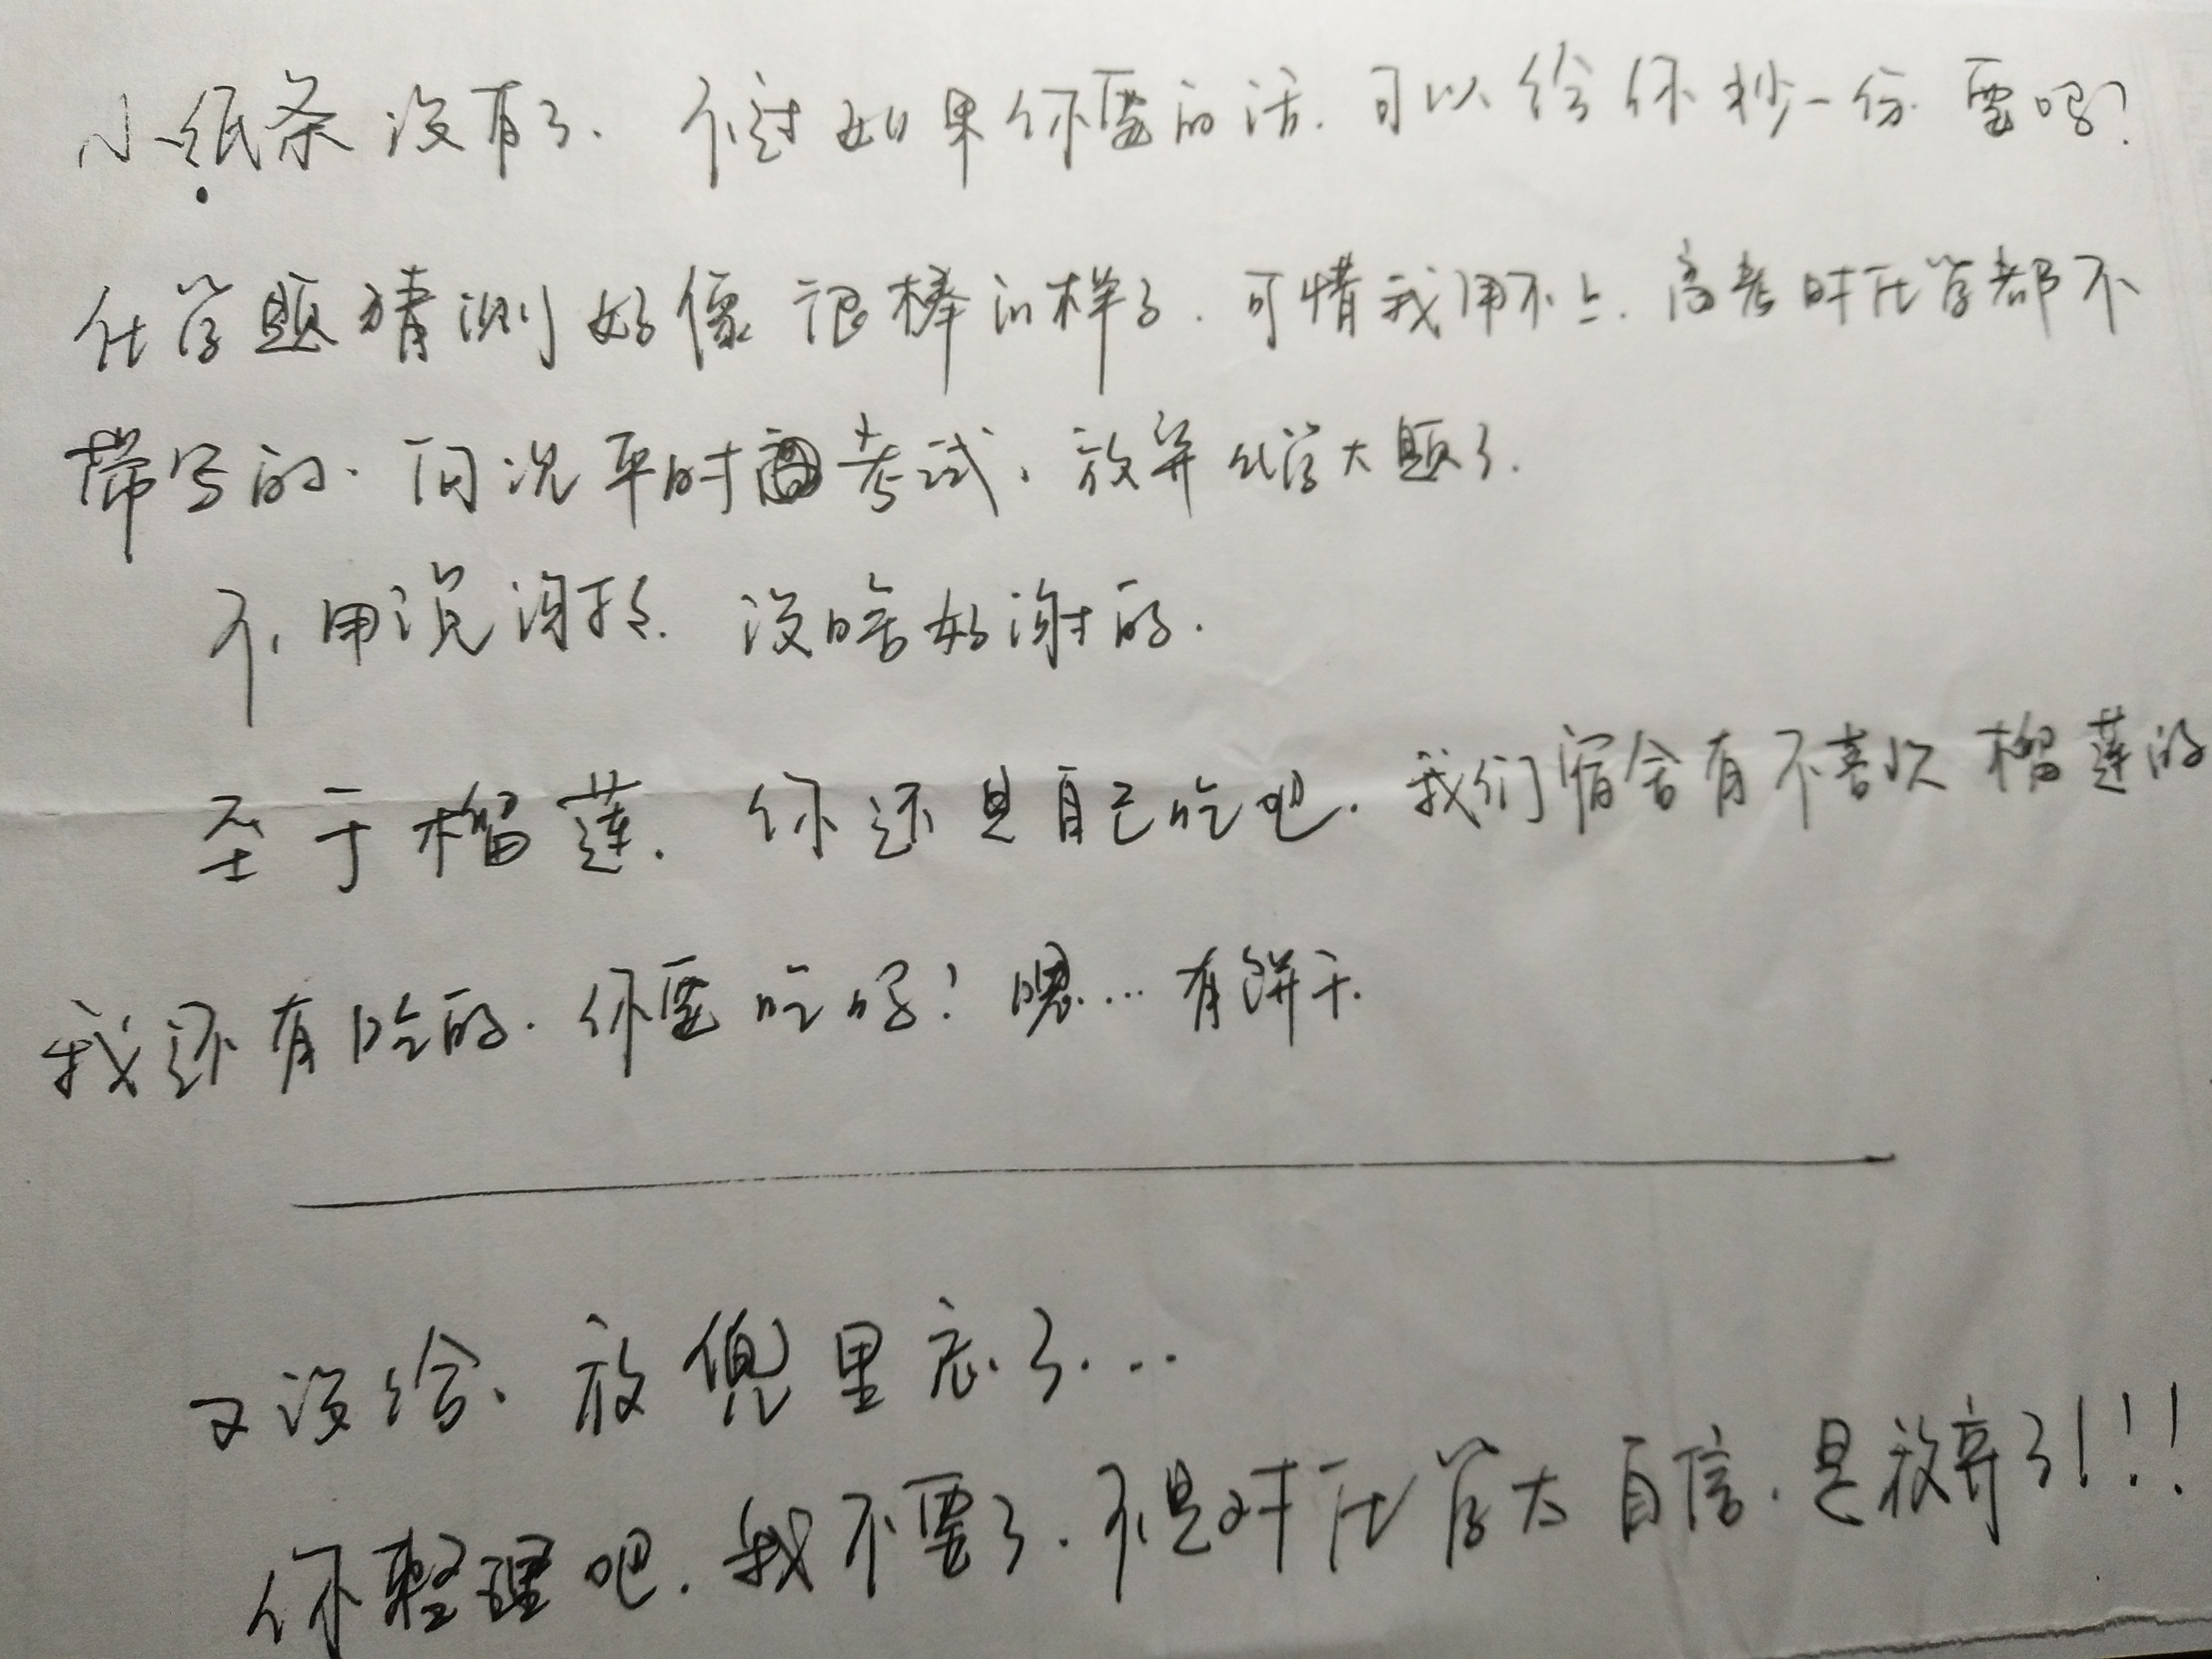 小纸条没有了、不过如果你要的话.可以给你抄一份.要吗?
化学题猜测好像很棒的样子.可惜我用不上.高考时化学都不
带写的.何况平时考试,放弃化学大题了.
不用说谢了.没啥好谢的.
至于榴莲.你还是自己吃吧.我们宿舍有不喜欢榴莲的
我还有吃的.你要吃吗?嗯...有饼干.
又没给、放兜里忘了...
你整理吧.我不要了.不是对化学太自信.是放弃了!!!